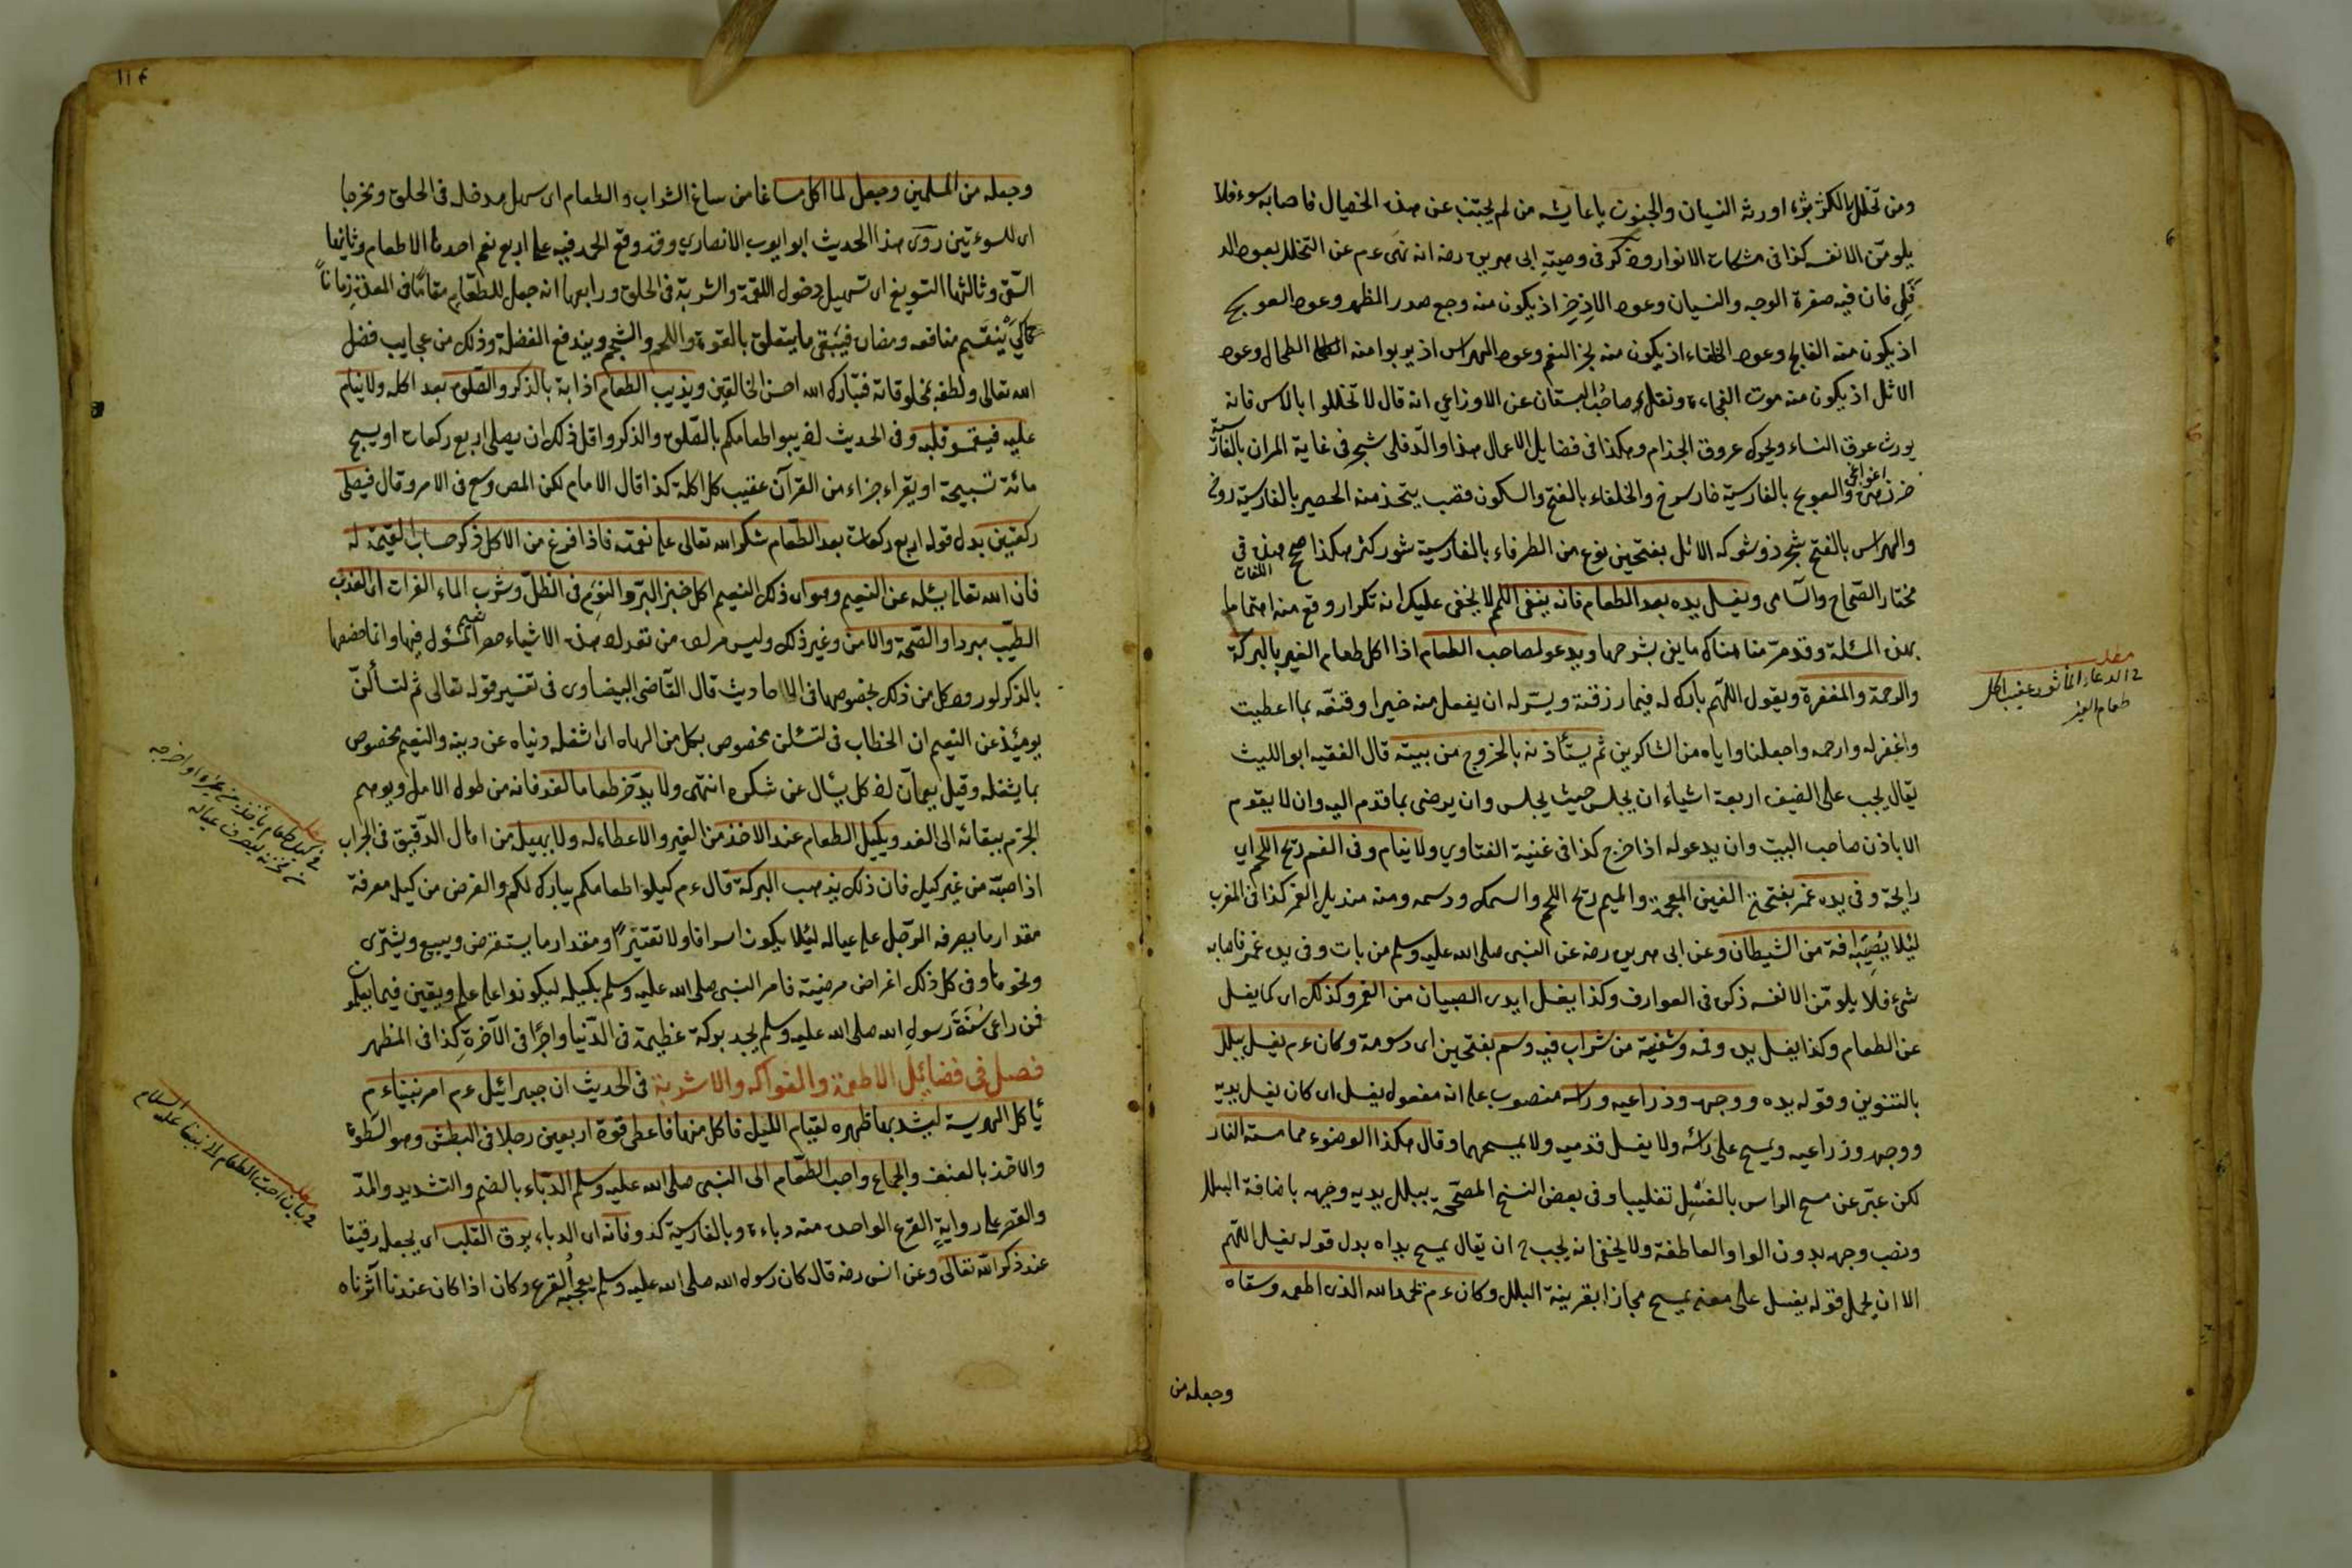 ومن تخلل بالكزبرة اورثه النسيان والجنون يا عايشه من لم يجتنب عن هذه الخصال فاصابه سوء فلا
يلومنّ الا نفسه كذا فى مشكاة الانوار وذكر فى وصيته ابى هريرة رضه انه نهى ءم عن التخلل بعود الد
فلى فان فيه صفرة الوجه والنسيان وعود الاذخر اذ يكون منه وجع صدر المظهر وعود العوسج
اذ يكون منه الفالج وعود الخلفاء اذ يكون منه بخر الفم وعود الهراس اذ يربوا منه الطحال وعود
الاثل اذ يكون منه موت الفجاءة ونقل صاحب البستان عن الاوزاعى انه قال لا تخللوا بالاس فانه
يورث عرق النساء ويحرك عروق الجذام وهكذا فى فضايل الاعمال هذا والدفلى شجر فى غاية المران بالفارسية
خر زهره والعوسج بالفارسية خار سوخ والخلفاء بالفتح والسكون قصب يتخذ منه الحصير بالفارسية روخ
والهراس بالفتح شجر ذو شوكه الاثل بفتحين نوع من الطرفاء بالفارسية شور كز هكذا صحح هذه فى
مختار الصحاح والسامى ويغسل يده بعد الطعام فانه ينفى اللمم لا يخفى عليك انه تكرار وقع منه اهتماما
بهذه المسئلة وقد مرّ منا هناك ما يشرحها ويدعو لصاحب الطعام اذا اكل طعام الغير بالبركة
والرحمة والمغفرة ويقول اللهم بارك له فيما رزقته ويسّر له ان يفعل منه خيرا وقنعه بما اعطيت
واغفر له وارحمه واجعلنا واياه من الشاكرين ثم يستأذنه بالخروج من بيته قال الفقيه ابو الليث
يقال يجب على الضيف اربعة اشياء ان يجلس حيث يجلس وان يرضى بما قدم اليه وان لا يقوم
الا باذن صاحب البيت وان يدعو له اذا خرج كذا فى غنية الفتاوى ولا ينام وفى الفم ريح اللحم اى
رايحة وفى يده غمر بفتحتى الغين المعجمة والميم ريح اللحم والسمك ودسمه ومنه منديل الغمر كذا فى المغرب
لئلا يصيبه افة من الشيطان وعن ابى هريرة رضه عن النبى صلى الله عليه وسلم من بات وفى يده غمر فاصابه
شئ فلا يلومنّ الا نفسه ذكره فى العوارف وكذا يغسل ايدى الصبيان من الغمر وكذلك اى كما يغسل
عن الطعام وكذا يغسل يده وفمه وشفتيه من شراب فيه دسم بفتحين اى دسومة وكان ءم يغسل ببلل
بالتنوين وقوله يده ووجهه وذراعيه وراسه منصوب على انه مفعول يغسل اى كان يغسل يديه
ووجهه وذراعيه ويمسح على رأسه ولا يغسل قدميه ولا يمسحهما وقال هكذا الوضوء مما مسته النار
لكن عبّر عن مسح الراس بالغسل تغليبا وفى بعض النسخ المصححة ببلل يديه وجهه باضافة البلل
ونصب وجهه بدون الواو العاطفة ولا يخفى انه يجب ح ان يقال يمسح يداه بدل قوله يغسل اللهم
الا ان يحمل قوله يغسل على معنى يمسح مجازا بقرينة البلل وكان ءم يحمد الله الذى اطعمه وسقاه
وجعله من
مطلب
فى الدعاء المأثور عقيب اكل
طعام الغير
١١٤
وجعله من المسلمين وجعل لما اكل مساغا من ساغ الشراب والطعام اى سهل مدخله فى الحلق ومخرجا
اى للسوءتين روى هذا الحديث ابو ايوب الانصارى وقد وقع الحمد فيه على اربع نعم احدها الاطعام وثانيها
السقى وثالثها التسويغ اى تسهيل دخول اللقمة والشربة فى الحلق ورابعها انه جعل للطعام مقاما فى المعدة زمانا
كى ينقسم منافعه ومضاره فيبقى ما يتعلق بالقوة واللحم والشحم ويندفع الفضلة وذلك من عجايب فضل
الله تعالى ولطفه بمخلوقاته فتبارك الله احسن الخالقين ويذيب الطعام اذابة بالذكر والصلوة بعد اكله ولا ينام
عليه فيقسو قلبه وفى الحديث اذيبوا طعامكم بالصلوة والذكر واقل ذلك ان يصلى اربع ركعات او يسبح
مائة تسبيحة او يقراء جزاء من القرآن عقيب كل اكلة كذا قال الامام لكن المص وسع فى الامر وقال فيصلى
ركعتين بدل قوله اربع ركعات بعد الطعام شكر الله تعالى على نعمته فاذا فرغ من الاكل ذكر حساب القيمة له
فان الله تعالى يسئله عن النعيم وهو اى ذلك النعيم اكل خبز البرّ والنوم فى الظل وشرب الماء الفرات اى العذب
الطيب مبردا والصحة والامن وغير ذلك وليس مراده من تعداد هذه الاشياء حصر المسؤل فيها وانما خصها
بالذكر لورود كل من ذلك بخصوصها فى الاحاديث قال القاضى البيضاوى فى تفسير قوله تعالى ثم لتسألنّ
يومئذ عن النعيم ان الخطاب فى لتسئلن مخصوص بكل من الهاه اى اشغله دنياه عن دينه والنعيم مخصوص
بما يشغله وقيل يعمان اذ كل يسأل عن شكره انتهى ولا يدّخر طعاما لغد فانه من طول الامل ويوهم
الجزم ببقائه الى الغد ويكيل الطعام عند الاخذ من الغير والاعطاء له ولا يهيله من اهال الدقيق فى الجراب
اذا صبّه من غير كيل فان ذلك يذهب البركة قال ءم كيلوا طعامكم يبارك لكم والغرض من كيل معرفة
مقدار ما يصرفه الرجل على عياله لئلا يكون اسرافا ولا تقتيرا ومقدار ما يستقرض ويبيع ويشترى
ونحوها وفى كل ذلك اغراض مرضية فامر النبى صلى الله عليه وسلم بكيله ليكونوا على علم ويقين فيما يعلمون
فمن راعى سنّة رسول الله صلى الله عليه وسلم يجد بركة عظيمة فى الدنيا واجرا فى الآخرة كذا فى المظهر
فصل فى فضائل الاطعمة والفواكه والاشربة فى الحديث ان جبرائيل ءم امر نبيناءم
يأكل الهريسة ليشد بها ظهره لقيام الليل فاكل منها فاعطى قوة اربعين رجلا فى البطش وهو السطوة
والاخذ بالعنف والجماع واحب الطعام الى النبى صلى الله عليه وسلم الدبّاء بالضم والتشديد والمدّ
والقصر على رواية القرع الواحدة منه دباءة وبالفارسية كدو فانه اى الدباء يرق القلب اى يجعل رقيقا
عند ذكر الله تعالى وعن انس رضه قال كان رسول الله صلى الله عليه وسلم يعجبه القرع وكان اذا كان عندنا آثرناه
فى بيان احب الطعام الى نبينا عليه السلام